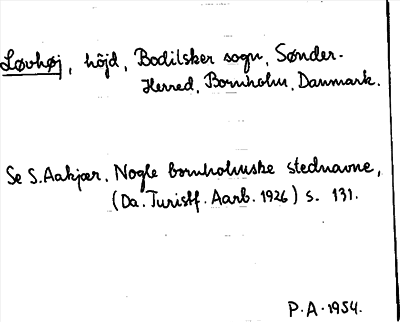 Løvhøj, höjd, Bodilsker sogn, Sønder-
Herred, Bornholm, Danmark.
Se S. Aakjær. Nogle bornholmske stednavne,
(Da. Turistf. Aarb. 1926) s. 131.
P.A. 1954.